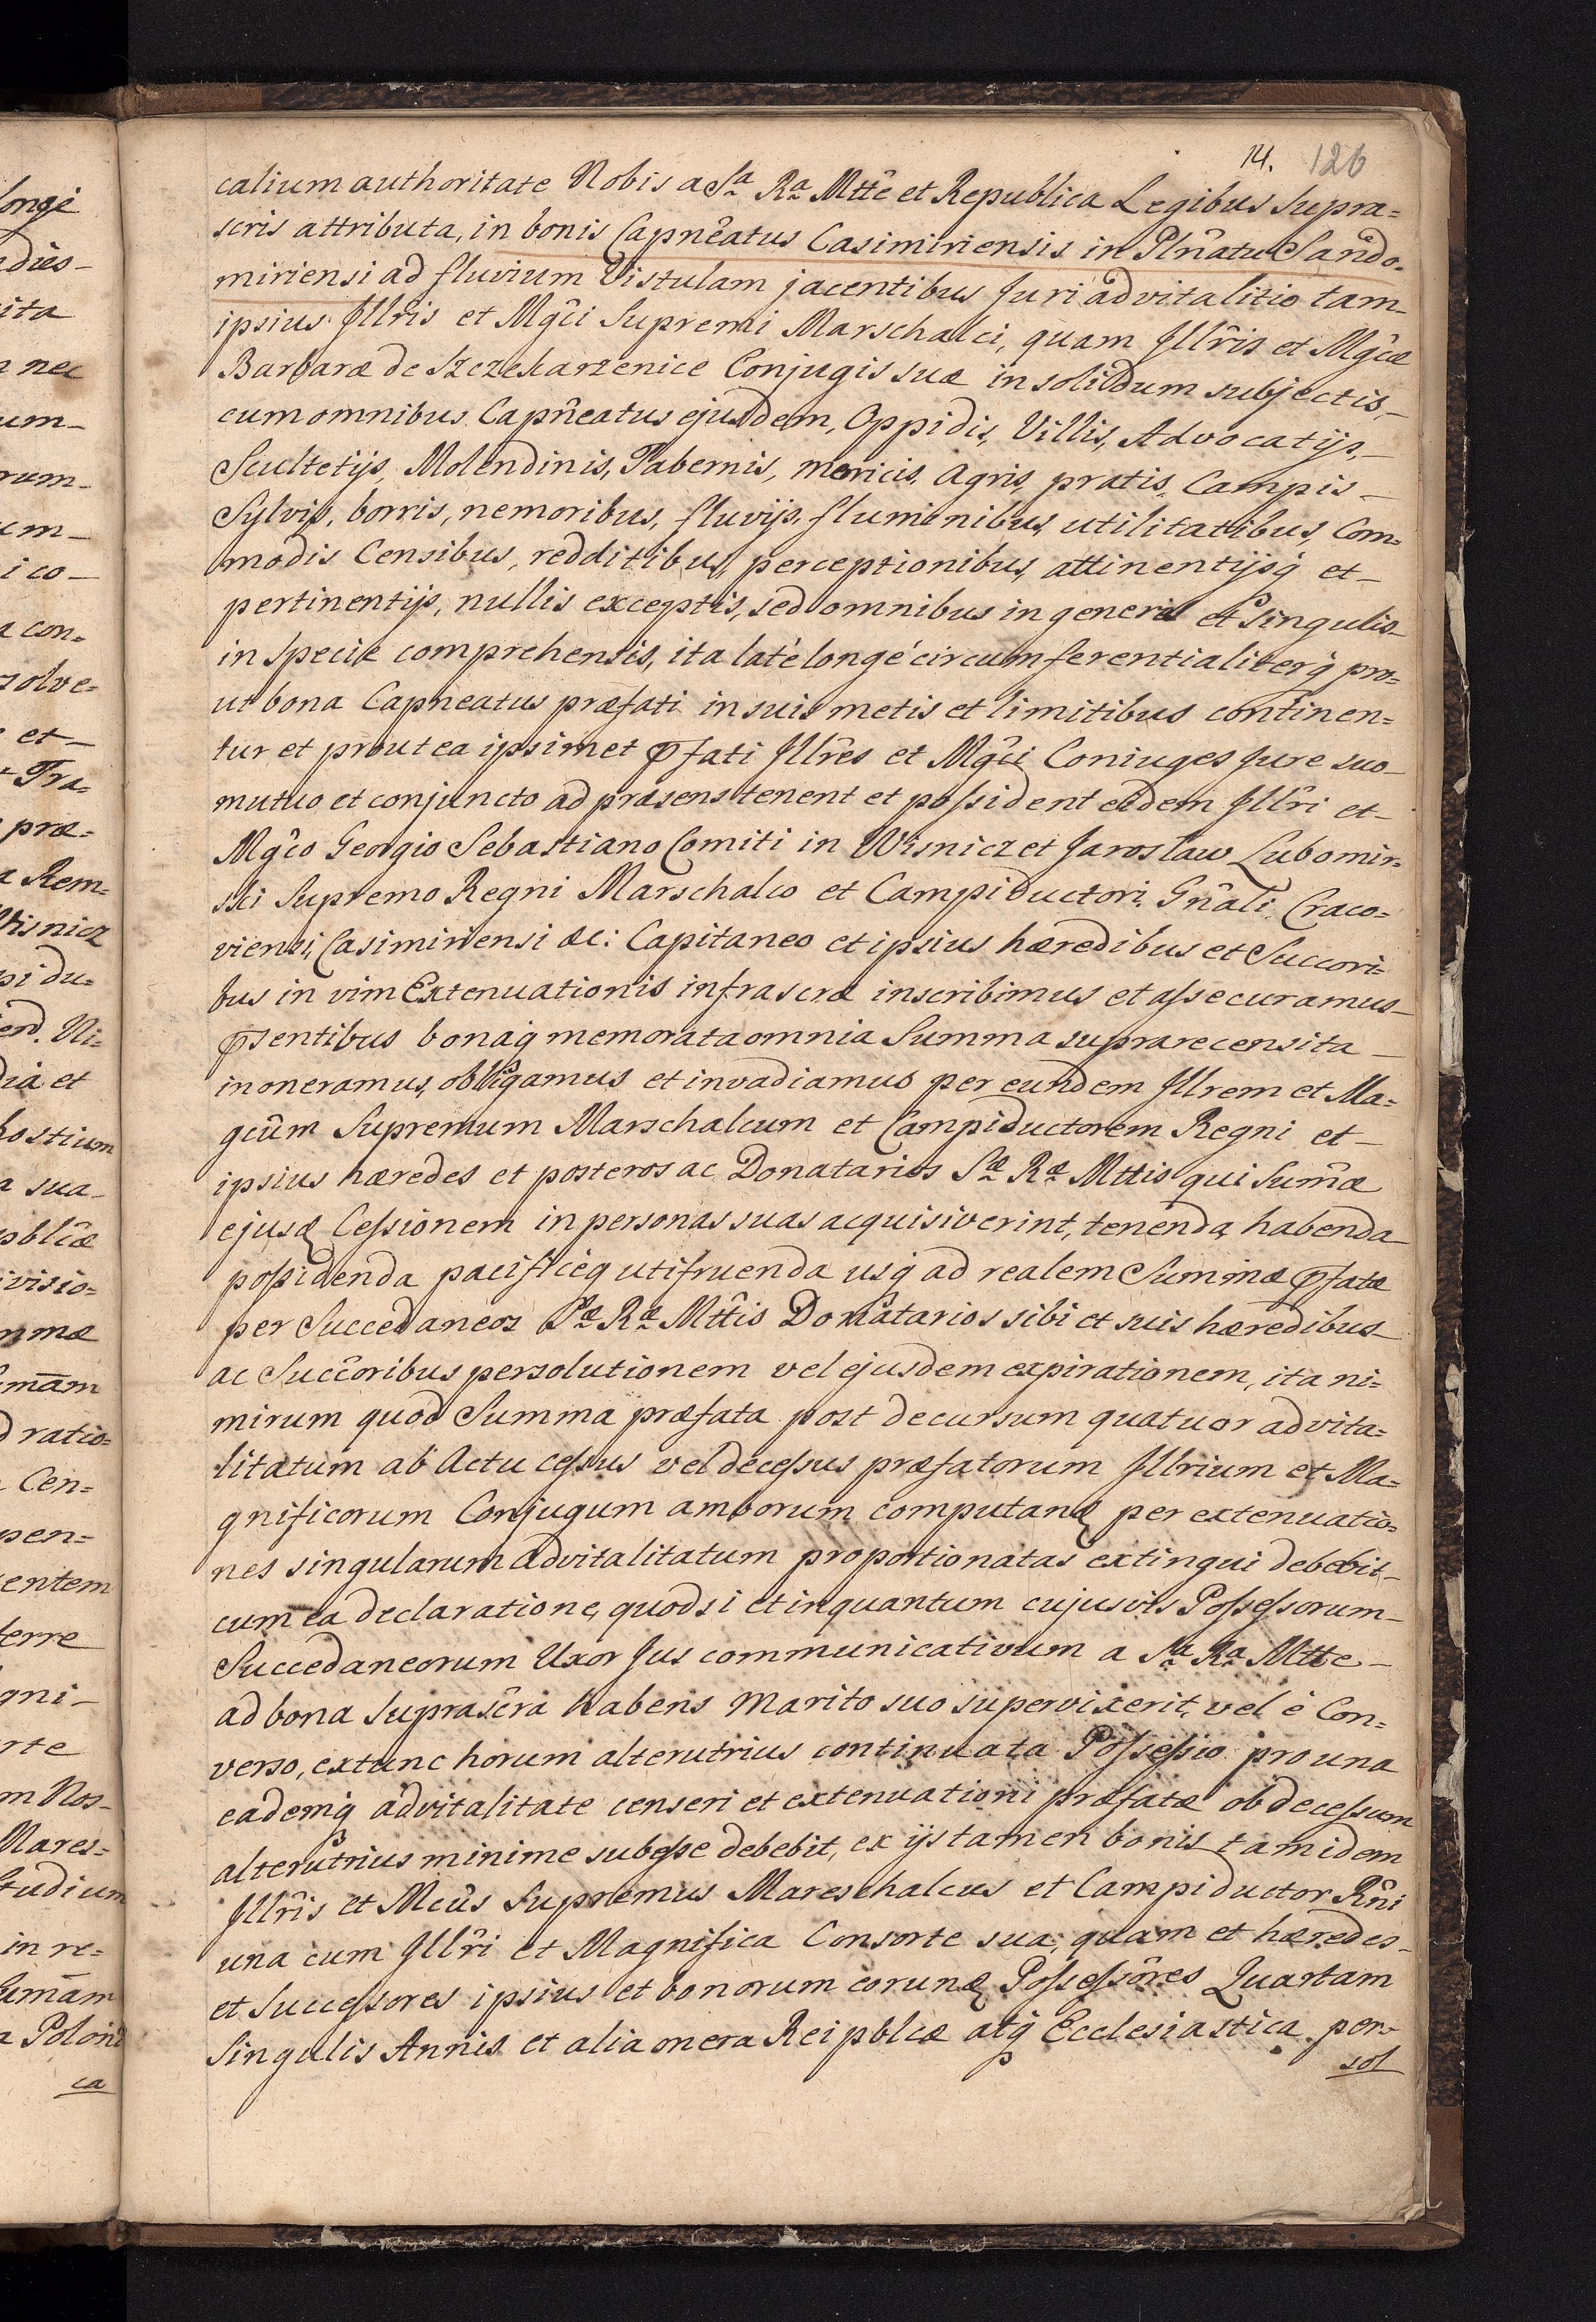 14. 126
calium authoritate Nobis a Sa Ra Mtte et Republica Legibus supra=
scris attributa, in bonis Capneatus Casimiriensis in Plnatu Sando=
miriensi ad fluvium Vistulam jacentibus Juri advitalitio tam_
ipsius Illris et Mgci Supremi Marschalci, quam Illris et Mgcæ
Barbaræ de Szczekarzenice Conjugis suæ in solidum subjectis,_
cum omnibus Capneatus ejusdem, Oppidis, Villis, Advocatijs,_
Scultetijs, Molendinis, Tabernis, mericis, Agris, pratis, Campis_
Sylvis, borris, nemoribus, fluvijs, fluminibus, utilitatibus, Com=
modis Censibus, redditibus, perceptionibus, attinentijsq et_
pertinentijs, nullis exceptis, sed omnibus in genere et singulis_
in specie comprehensis, ita latè longè circumferentialiterq pro=
ut bona Capneatus præfati in suis metis et limitibus continen=
tur et prout ea ipsimet pfati Illres et Mgci Coniuges Jure suo_
mutuo et conjuncto ad præsens tenent et possident eidem Illri et_
Mgco Georgio Sebastiano Comiti in Wisnicz et Jaroslaw Lubomir=
ski Supremo Regni Marschalco et Campiductori Gnali, Craco=
viensi, Casimiriensi &c: Capitaneo et ipsius hæredibus et Succori=
bus in vim Extenuationis infrascræ inscribimus et assecuramus_
psentibus bonaq memorata omnia Summa suprarecensita_
inoneramus, obligamus et invadiamus per eundem Illrem et Ma=
gcum Supremum Marschalcum et Campiductorem Regni et_
ipsius hæredes et posteros ac Donatarios Sæ Ræ Mttis qui Sumæ
ejusd Cessionem in personas suas acquisiverint, tenenda, habenda_
possidenda pacificeq utifruenda usq ad realem Summæ pfatæ
per Succedaneos Sæ Ræ Mttis Donatarios sibi et suis hæredibus_
ac Succoribus persolutionem vel ejusdem expirationem, ita ni=
mirum quod Summa præfata post decursum quatuor advita=
litatum ab Actu cessus vel decessus præfatorum Illrium et Ma=
gnificorum Conjugum amborum computand per extenuatio=
nes singularum advitalitatum proportionatas extingui debebit_
cum ea declaratione, quod si et inquantum cujusvis Possessorum_
Succedaneorum Uxor Jus communicativum a Sa Ra Mtte_
ad bona suprascra habens marito suo supervixerit, vel è Con=
verso, extunc horum alterutrius continuata Possessio pro una
eademq advitalitate censeri et extenuationi præfatæ ob decessum
alterutrius minime subesse debebit, ex ijs tamen bonis tam idem
Illris et Mcus Supremus Mareschalcus et Campiductor Rni
una cum Illri et Magnifica Consorte sua, quam et hæredes_
et successores ipsius et bonorum eorund Possessores Quartam
singulis Annis et alia onera Reipblcæ atq Ecclesiastica per=
sol